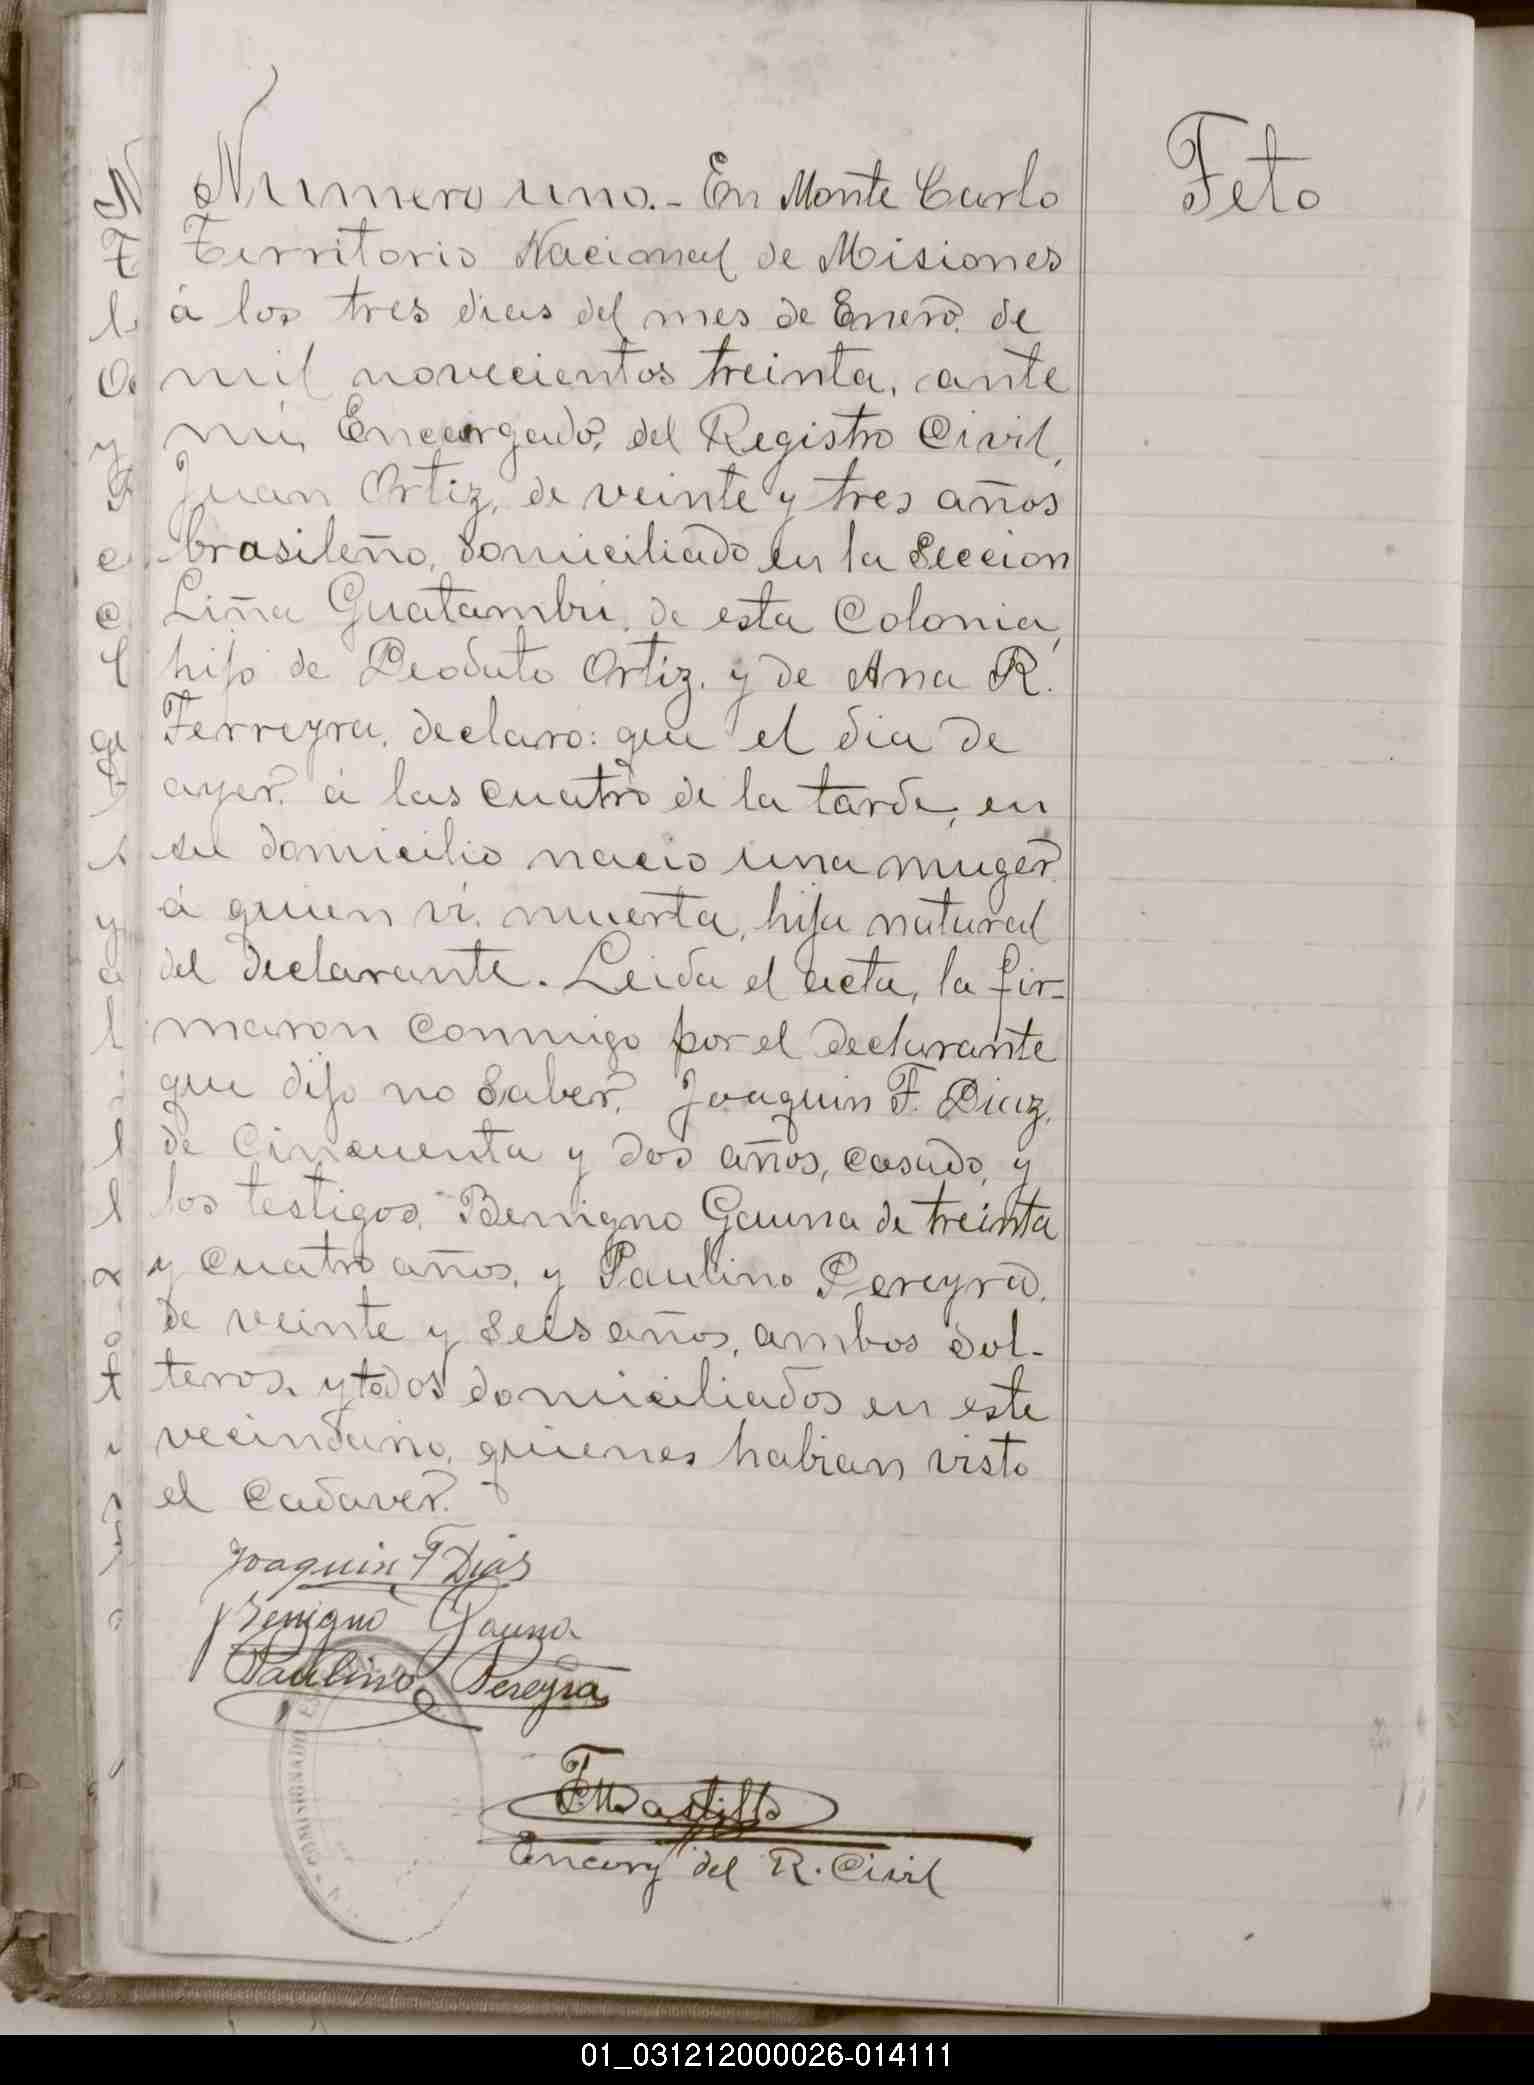 Numero uno.- En Monte Carlo
Territorio Nacional de Misiones
á los tres dias del mes de Enero de
mil novecientos treinta, ante
mi, Encargado, del Registro Civil,
Juan Ortiz, de veinte y tres años
brasileño, domiciliado en la Seccion
Liña Guatambú, de esta Colonia,
hijo de Deoduto Ortiz, y de Ana R.
Ferreyra, declaro: que el dia de
ayer, á las cuatro de la tarde, en
su domicilio nacio una muger
á quien ví, muerta, hija natural
del declarante. Leida el acta, la fir-
maron conmigo por el declarante
que dijo no saber, Joaquin F. Diaz,
de cincuenta y dos años, casado, y
los testigos, Benigno Gauna de treinta
y cuatro años, y Paulino Pereyra,
de veinte y seis años, ambos sol-
teros, y todos domiciliados en este
vecindario, quienes habian visto
el cadaver.
Feto
Joaquin F Dias
Benigno Gauna
Paulino Pereyra
COMISIONADO
Encarg del R. Civil
01_031212000026-014111